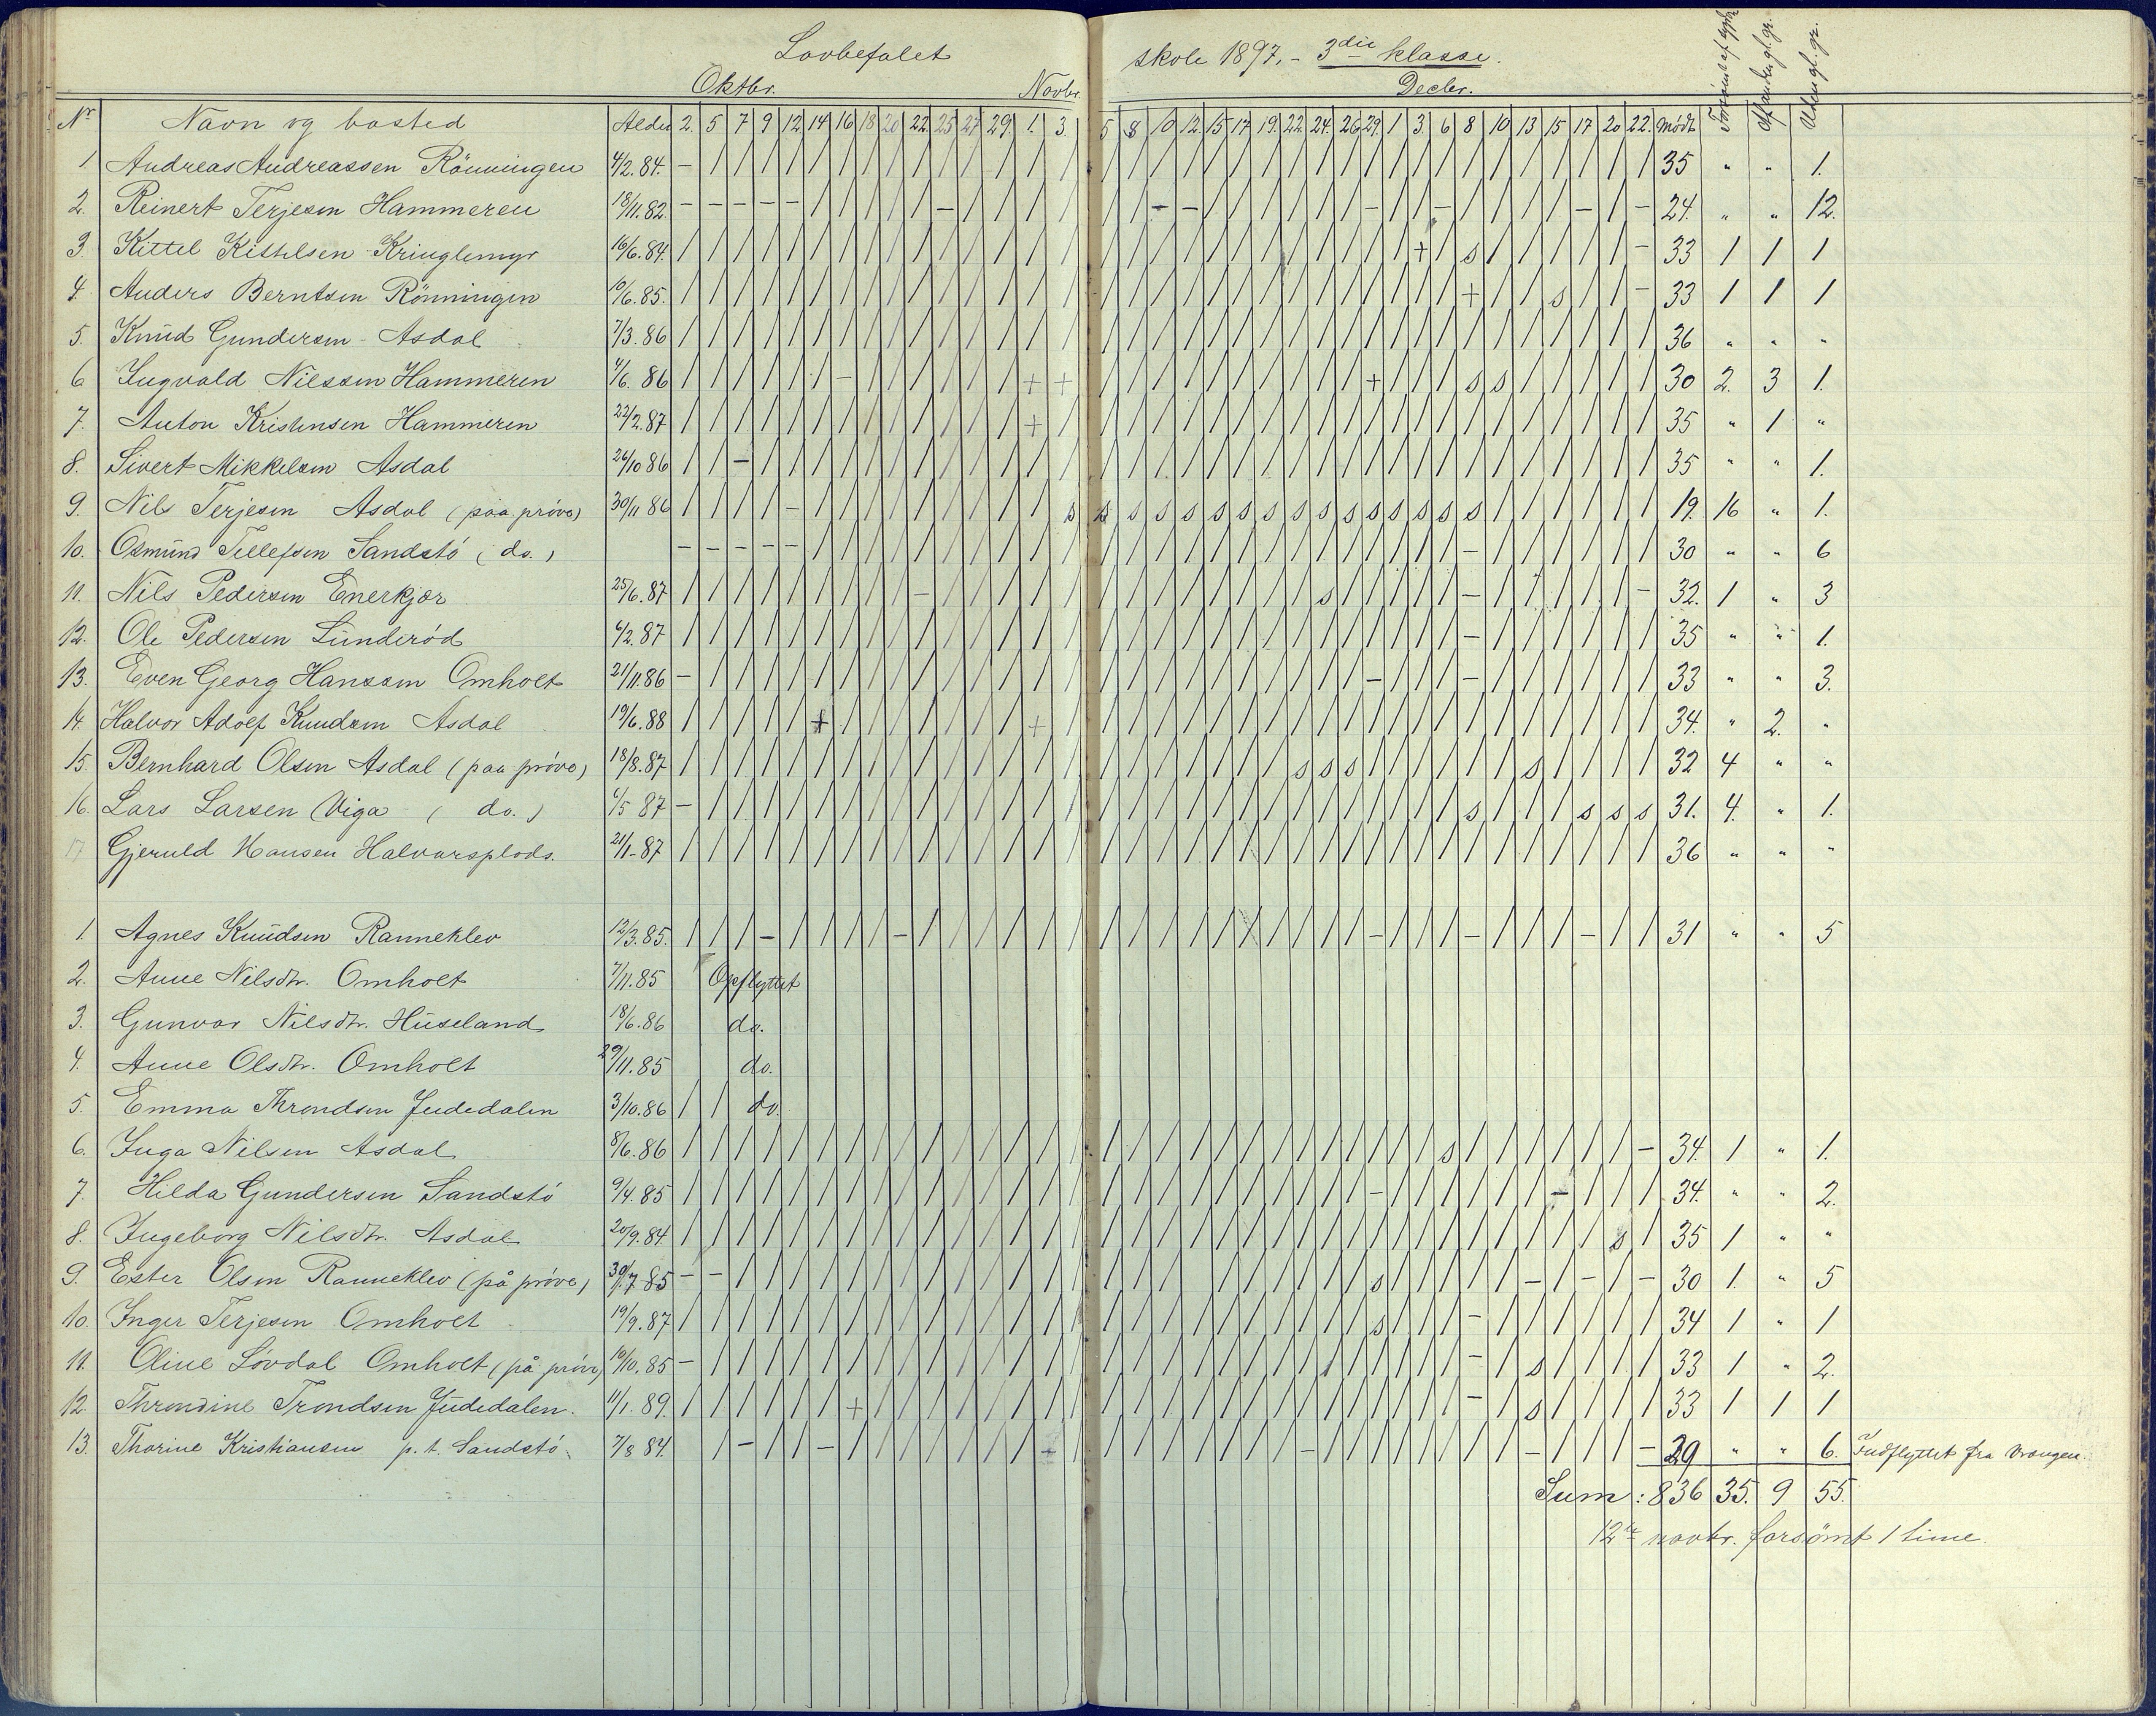 Lovbefalet skole 1897. - 3die klasse.
Oktbr. Novbr. Decbr.
Nr Navn og bosted Alder 2. 5 7 9 12 14 16 18 20 22 25 27 29. 1. 3. 5 8 10 12. 15 17 19. 22. 24. 26 29. 1 3. 6 8 10 13 15 17 20 22. Mødt Forsømt af sygd. Af anden gl. gr. Uden gl. gr.
1 Andreas Andreassen Rönningen 4/2.84. - / / / / / / / / / / / / / / / / / / / / / / / / / / / / / / / / / / / 35 " " 1.
2. Reinert Terjesen Hammeren 18/11.82. - - - - - / / / / / - / / / / / / - - / / / / / / - / / - / / / / - / - 24. " " 12.
3. Kittel Kittelsen Kringlemyr 16/6.84. / / / / / / / / / / / / / / / / / / / / / / / / / / / + / s / / / / / - 33 1 1 1
4. Anders Berntsen Rönningen 10/6.85. / / / / / / / / / / / / / / / / / / / / / / / / / / / / / + / / s / / - 33 1 1 1
5. Knud Gundersen - Asdal 7/3.86 / / / / / / / / / / / / / / / / / / / / / / / / / / / / / / / / / / / / 36 " " "
6 Ingvald Nilssen Hammeren 4/6. 86 / / / / / / - / / / / / / + + / / / / / / / / / / + / / / s s / / / / / 30 2. 3 1.
7. Anton Kristensen Hammeren 22/2.87 / / / / / / / / / / / / / + / / / / / / / / / / / / / / / / / / / / / / 35 " 1 "
8. Sivert Mikkelsen Asdal 26/10 86 / / - / / / / / / / / / / / / / / / / / / / / / / / / / / / / / / / / / 35 " " 1.
9. Nils Terjesen Asdal (paa prøve) 30/11 86 / / / / - / / / / / / / / / s s s s s s s s s s s s s s s s / / / / / / 19. 16 " 1.
10. Osmund Tellefsen Sandstö (do.) - - - - - / / / / / / / / / / / / / / / / / / / / / / / / - / / / / / / 30 " " 6
11. Nils Pedersen Enerkjær 25/6.87 / / / / / / / / / - / / / / / / / / / / / / / s / / / / / - / / / / / - 32. 1 " 3
12. Ole Pedersen Lunderöd 6/2.87 / / / / / / / / / / / / / / / / / / / / / / / / / / / / / - / / / / / / 35 " " 1.
13. Even Georg Hanssen Omholt 21/11.86 - / / / / / / / / / / / / / / / / / / / / / / / / - / / / - / / / / / / 33 " " 3.
14. Halvor Adolf Knudsen Asdal 19/6.88 / / / / / + / / / / / / / + / / / / / / / / / / / / / / / / / / / / / / 34. " 2. "
15. Bernhard Olsen Asdal (paa prøve) 18/8.87 / / / / / / / / / / / / / / / / / / / / / / s s s / / / / / / s / / / / 32 4 " "
16. Lars Larsen Viga (do.) 6/5 87 - / / / / / / / / / / / / / / / / / / / / / / / / / / / / s / / / s s s 31. 4. " 1.
17 Gjeruld Hansen Halvarsplads. 21/1-87 / / / / / / / / / / / / / / / / / / / / / / / / / / / / / / / / / / / / 36 " " "
1. Agnes Knudsen Ranneklev 12/3.85. / / / - / / / / - / / / / / / / / / / / / / / / / - / / / - / / / - / / 31 " " 5
2. Anne Nilsdtr. Omholt 7/11.85 Opflyttet
3. Gunvor Nilsdtr. Huseland 18/6.86 do.
4. Anne Olsdtr. Omholt 29/11.85 do.
5. Emma Throndsen Judedalen 3/10.86 / / do.
6. Inga Nilsen Asdal 8/6.86 / / / / / / / / / / / / / / / / / / / / / / / / / / / / s / / / / / / - 34. 1 " 1.
7. Hilda Gundersen Sandstö 9/4.85 / / / / / / / / / / / / / / / / / / / / / / / / / - / / / / / / - / / / 34. " " 2.
8. Ingeborg Nilsdtr. Asdal 20/9.84 / / / / / / / / / / / / / / / / / / / / / / / / / / / / / / / / / / s / 35 1 " "
9. Ester Olsen Ranneklev (på prøve) 30/7 85 - - / / / / / / / / / / / / / / / / / / / / / / / s / / / / / - / - / - 30 1. " 5
10. Inger Terjesen Omholt 19/9.87 / / / / / / / / / / / / / / / / / / / / / / / / / s / / / - / / / / / / 34 1 " 1
11. Oline Lövdal Omholt (på prøve) 10/10.85 - / / / / / / / / / / / / / / / / / / / / / / / / / / / / - / s / / / / 33 1 " 2.
12. Throndine Trondsen Judedalen. 11/1.89. / / / / / / + / / / / / / / / / / / / / / / / / / / / / / - / s / / / / 33 1 1 1
13. Thorine Kristiansen p.t. Sandstö. 7/8 84. / - / / - / / / / / / / - / / / / / / / / - / / / / / / / / - / / / - 29 " " 6. Indflyttet fra Vrangen.
Sum: 836 35. 9 55.
12te novbr. forsömt 1 time.